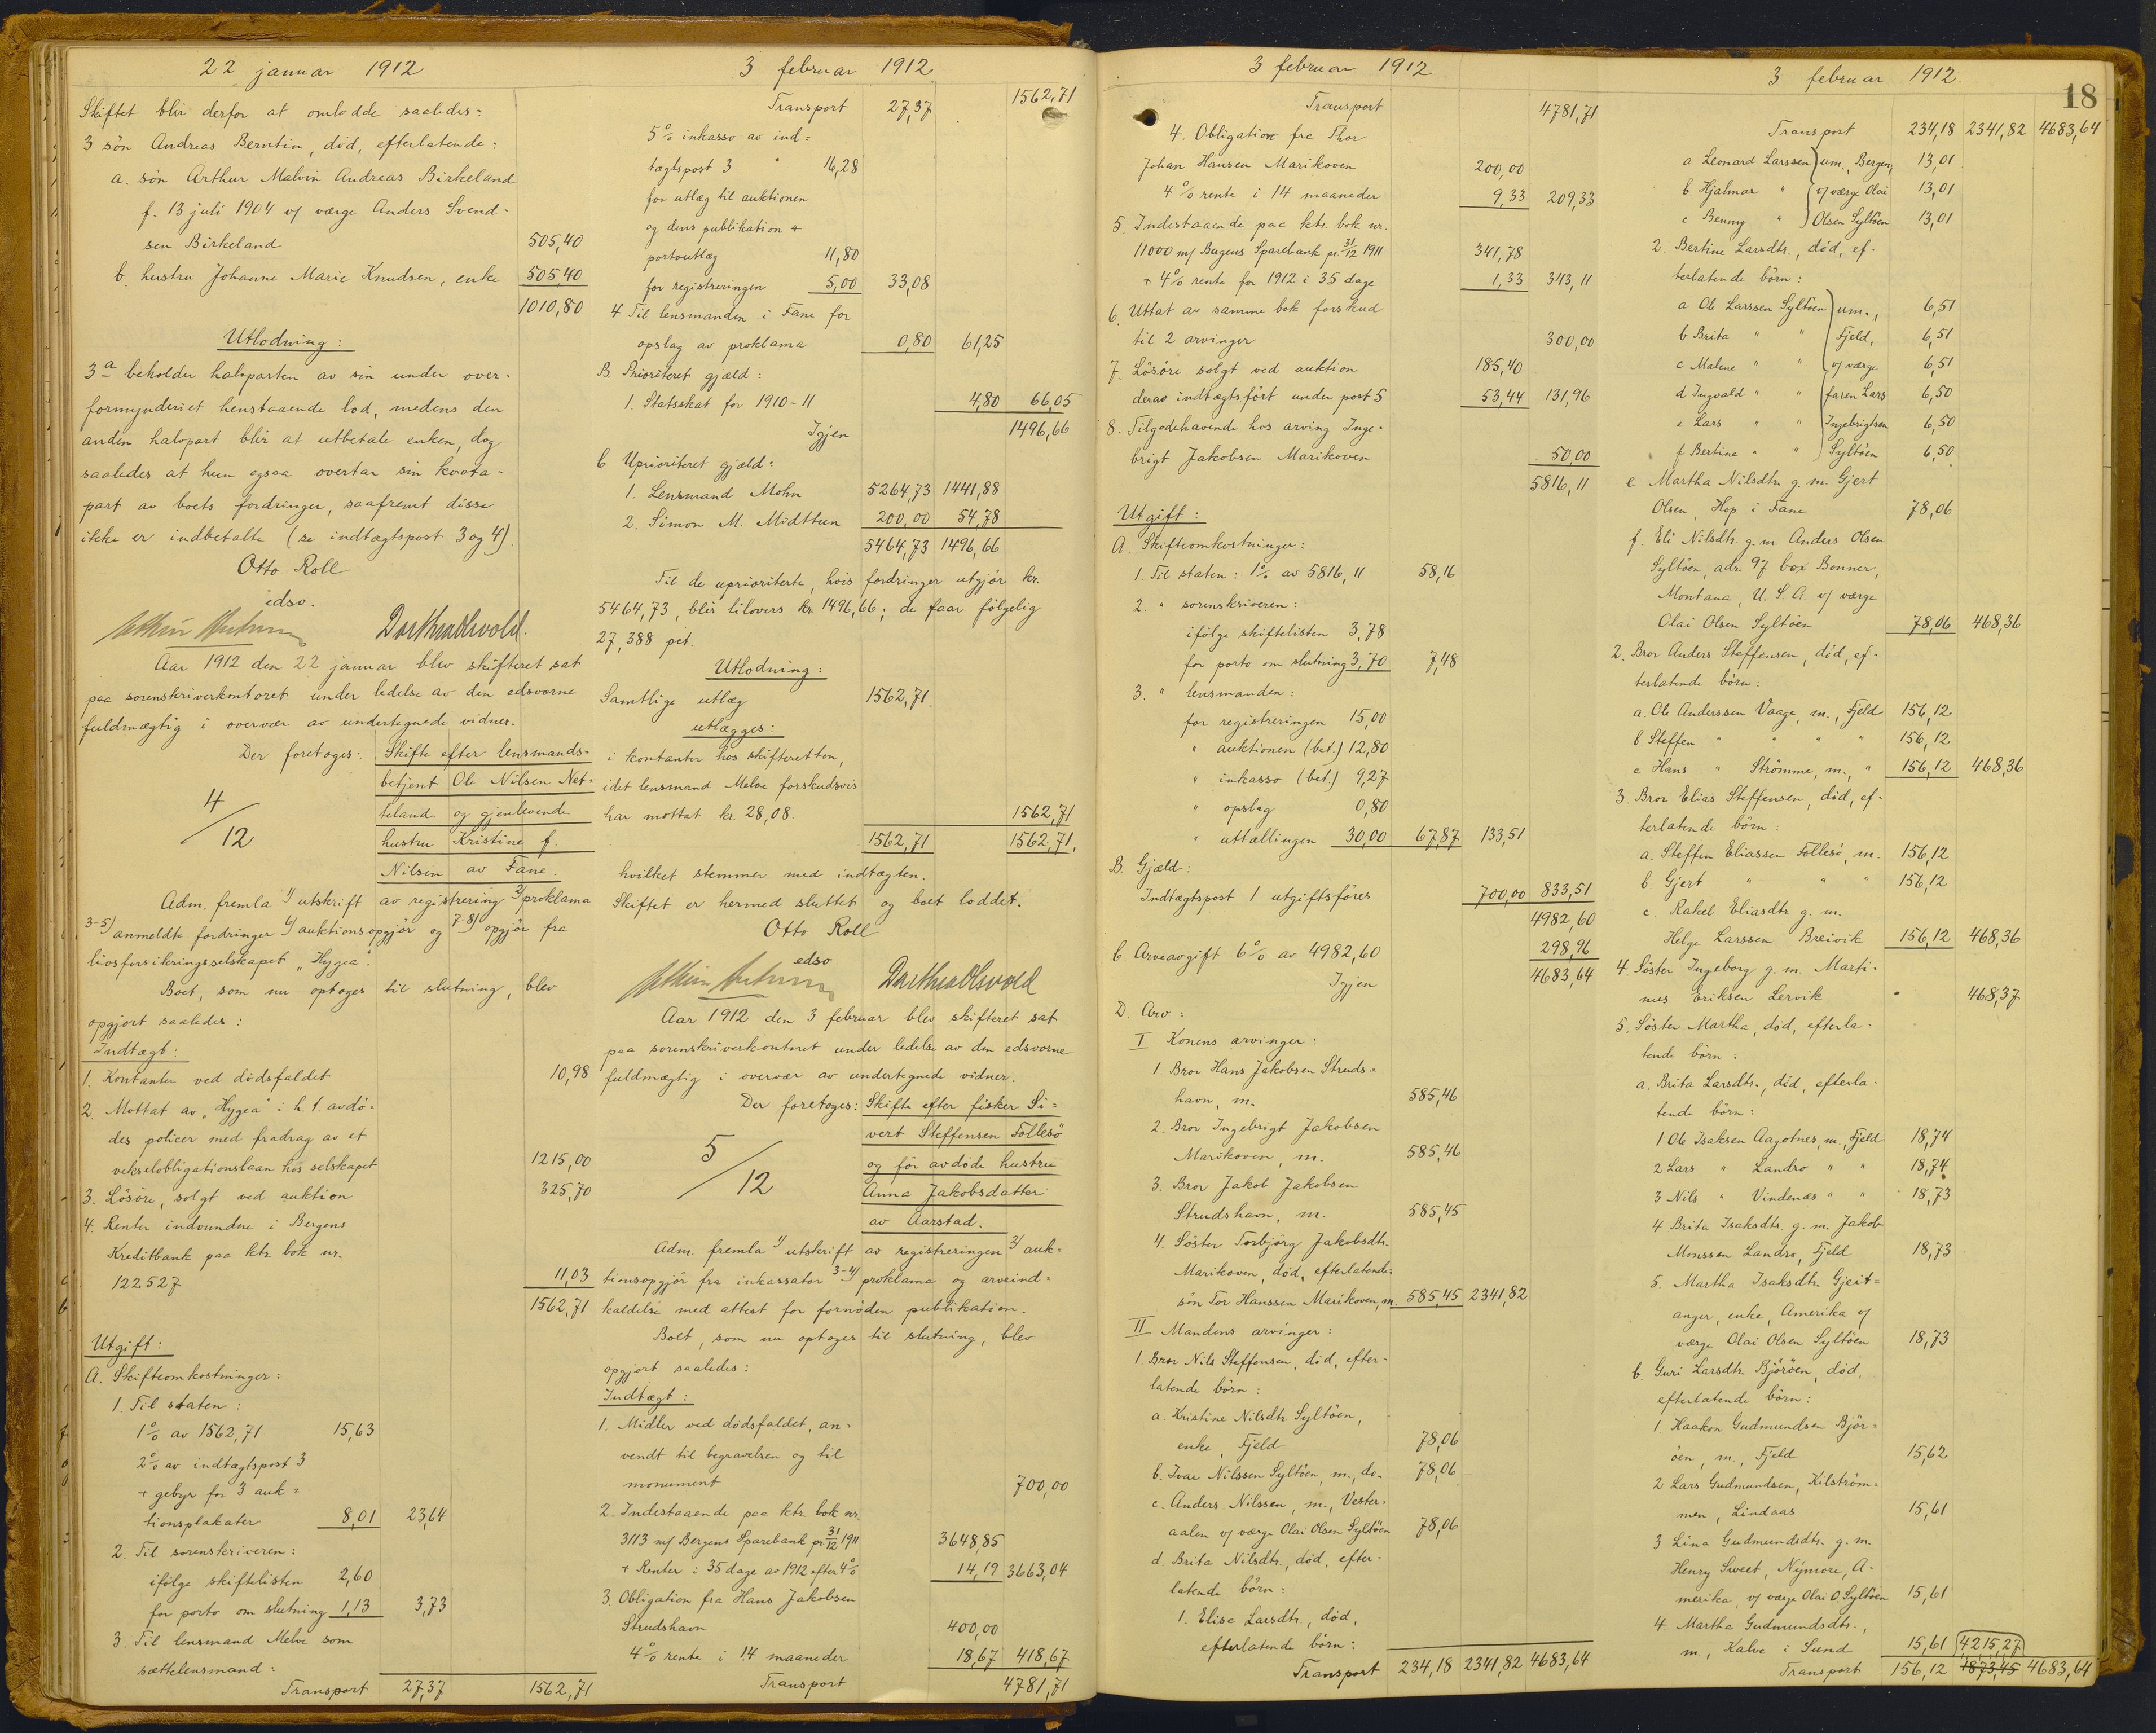 22 januar 1912
Skiftet blir derfor at omlodde saaledes:
3 sön Andreas Berntin, död, efterlatende:
a. sön Arthur Malvin Andreas Birkeland
f. 13 juli 1904 v/ værge Anders Svend-
sen Birkeland 505,40
b. hustru Johanne Marie Knudsen, enke 505,40
1010,80
Utlodning:
3a beholder halvparten av sin under over-
formynderiet henstaaende lod, medens den
anden halvpart blir at utbetale enken, dog
saaledes at hun ogsaa overtar sin kvota-
part av boets fordringer, saafremt disse
ikke er indbetalte (se indtægtspost 3 og 4).
Otto Roll
edsv.
Aar 1912 den 22 januar blev skifteret sat
paa sorenskriverkontoret under ledelse av den edsvorne
fuldmægtig i overvær av undertegnede vidner.
Der foretoges: Skifte efter lensmands-
betjent Ole Nilsen Net-
4/12 teland og gjenlevende
hustru Kristine f.
Nilsen av Fane.
Adm. fremla 1) utskrift av registrering 2) proklama
3-5) anmeldte fordringer 6) auktionsopgjör og 7-8) opgjör fra
livsforsikringsselskapet "Hygea".
Boet, som nu optoges til slutning, blev
opgjort saaledes:
Indtægt:
1. Kontanter ved dödsfaldet 10,98
2. Mottat av "Hygea" i h. t. avdö-
des policer med fradrag av et
vekselobligationslaan hos selskapet 1215,00
3. Lösöre, solgt ved auktion 325,70
4. Renter indvundne i Bergens
Kreditbank paa ktr. bok nr.
122527 11,03
1562,71
Utgift:
A. Skifteomkostninger:
1. Til staten:
1% av 1562,71 15,63
2% av indtægtspost 3
+ gebyr for 3 auk-
tionsplakater 8,01 23,64
2. Til sorenskriveren:
ifölge skiftelisten 2,60
for porto om slutning 1,13 3,73
3. Til lensmand Melve som
sættelensmand:
Transport 27,37 1562,71
3 februar 1912
Transport 27,37 1562,71
5% inkasso av ind-
tægtspost 3 " 16,28
for utlæg til auktionen
og dens publikation +
portoutlæg 11,80
for registreringen 5,00 33,08
4 Til lensmanden i Fane for
opslag av proklama 0,80 61,25
B. Prioriteret gjæld:
1. Statsskat for 1910-11 4,80 66,05
Igjen 1496,66
C Uprioriteret gjæld:
1. Lensmand Mohn 5264,73 1441,88
2. Simon M. Midttun 200,00 54,78
5464,73 1496,66
Til de uprioriterte, hvis fordringer utgjör kr.
5464,73, blir tilovers kr. 1496,66; de faar fölgelig
27,388 pct.
Utlodning:
Samtlige utlæg 1562,71
utlægges:
i kontanter hos skifteretten,
idet lensmand Melve forskudsvis
har mottat kr. 28,08. 1562,71
1562,71 1562,71.
hvilket stemmer med indtægten.
Skiftet er hermed sluttet og boet loddet.
Otto Roll
edsv
Aar 1912 den 3 februar blev skifteret sat
paa sorenskriverkontoret under ledelse av den edsvorne
fuldmægtig i overvær av undertegnede vidner.
Der foretoges: Skifte efter fisker Si-
vert Steffensen Follesö
5/12 og för avdöde hustru
Anna Jakobsdatter
av Aarstad.
Adm. fremla 1) utskrift av registreringen 2) auk-
tionsopgjör fra inkassator 3-4) proklama og arveind-
kaldelse med attest for fornöden publikation.
Boet, som nu optoges til slutning, blev
opgjort saaledes:
Indtægt:
1. Midler ved dödsfaldet, an-
vendt til begravelsen og til
monument 700,00
2. Indestaaende paa ktr. bok nr.
3113 m/ Bergens Sparebank pr. 31/12 1911 3648,85
+ Renter i 35 dage av 1912 efter 4% 14,19 3663,04
3. Obligation fra Hans Jakobsen
Strudshavn 400,00
4% rente i 14 maaneder 18,67 418,67
Transport 4781,71
3 februar 1912
Transport 4781,71
4. Obligation fra Thor
Johan Hansen Marikoven 200,00
4% rente i 14 maaneder 9,33 209,33
5. Indestaaende paa ktr. bok nr.
11000 m/ Bergens Sparebank pr. 31/12 1911 341,78
+ 4% rente for 1912 i 35 dage 1,33 343,11
6. Uttat av samme bok forskud
til 2 arvinger 300,00
7. Lösöre solgt ved auktion 185,40
derav indtægtsfört under post 5 53,44 131,96
8. Tilgodehavende hos arving Inge-
brigt Jakobsen Marikoven 50,00
5816,11
Utgift:
A. Skifteomkostninger:
1. Til staten: 1% av 5816,11 58,16
2. " sorenskriveren:
ifölge skiftelisten 3,78
for porto om slutning 3,70 7,48
3. " lensmanden:
for registreringen 15,00
" auktionen (bet.) 12,80
" inkasso (bet.) 9,27
" opslag 0,80
" uttællingen 30,00 67,87 133,51
B. Gjæld:
Indtægtspost 1 utgiftsföres 700,00 833,51
4982,60
C Arveavgift 6% av 4982,60 298,96
Igjen 4683,64
D. Arv:
I Konens arvinger:
1. Bror Hans Jakobsen Struds-
havn, m. 585,46
2. Bror Ingebrigt Jakobsen
Marikoven, m. 585,46
3. Bror Jakob Jakobsen
Strudshavn, m. 585,45
4. Söster Torbjörg Jakobsdtr.
Marikoven, död, efterlatende:
sön Tor Hanssen Marikoven, m. 585,45 2341,82
II Mandens arvinger:
1. Bror Nils Steffensen, död, efter-
latende börn:
a. Kristine Nilsdtr. Syltöen,
enke, Fjeld 78,06
b. Ivar Nilssen Syltöen, m., do. 78,06
c. Anders Nilssen, m., Vester-
aalen v/ værge Olai Olsen Syltöen 78,06
d. Brita Nilsdtr., död, efter-
latende börn:
1. Elise Larsdtr., död,
efterlatende börn:
Transport 234,18 2341,82 4683,64
3 februar 1912.
18
Transport 234,18 2341,82 4683,64
a Leonard Larssen um., Bergen, 13,01
b Hjalmar " v/ værge Olai 13,01
c Benny " Olsen Syltöen 13,01
2. Bertine Larsdtr., död, ef-
terlatende börn:
a Ole Larssen Syltöen um., 6,51
b Brita " " Fjeld, 6,51
c Malene " " v/ værge 6,51
d Ingvald " " faren Lars 6,50
e Lars " " Ingebrigtsen 6,50
f Bertine " " Syltöen 6,50
e Martha Nilsdtr. g. m. Gjert
Olsen, Hop i Fane 78,06
f. Eli Nilsdtr. g. m. Anders Olsen
Syltöen, adr. 97 box Bonner,
Montana, U. S. A. v/ værge
Olai Olsen Syltöen 78,06 468,36
2. Bror Anders Steffensen, död, ef-
terlatende börn:
a. Ole Anderssen Vaage, m., Fjeld 156,12
b. Steffen " " " " 156,12
c Hans " Strömme, m., " 156,12 468,36
3. Bror Elias Steffensen, död, ef-
terlatende börn:
a. Steffen Eliassen Follesö, m. 156,12
b. Gjert " " " 156,12
c. Rakel Eliasdtr. g. m.
Helge Larssen Breivik 156,12 468,36
4. Söster Ingeborg g. m. Marti-
nus Eriksen Lervik 468,37
5. Söster Martha, död, efterla-
tende börn:
a. Brita Larsdtr., död, efterla-
tende börn:
1 Ole Isaksen Aagotnes, m., Fjeld 18,74
2 Lars " Landro " " 18,74
3 Nils " Vindenæs " " 18,73
4 Brita Isaksdtr. g. m. Jakob
Monssen Landro, Fjeld 18,73
5. Martha Isaksdtr. Gjeit-
anger, enke, Amerika v/
værge Olai Olsen Syltöen 18,73
b. Guri Larsdtr. Björöen, död,
efterlatende börn:
1 Haakon Gudmundsen Björ-
öen, m., Fjeld 15,62
2 Lars Gudmundsen, Kilström-
men, Lindaas 15,61
3 Lina Gudmundsdtr. g. m.
Henry Sweet, Nymore, A-
merika, v/ værge Olai O. Syltöen 15,61
4 Martha Gudmundsdtr.,
m., Kalve i Sund 15,61 4215,27
Transport 156,12 1873,45 4683,64